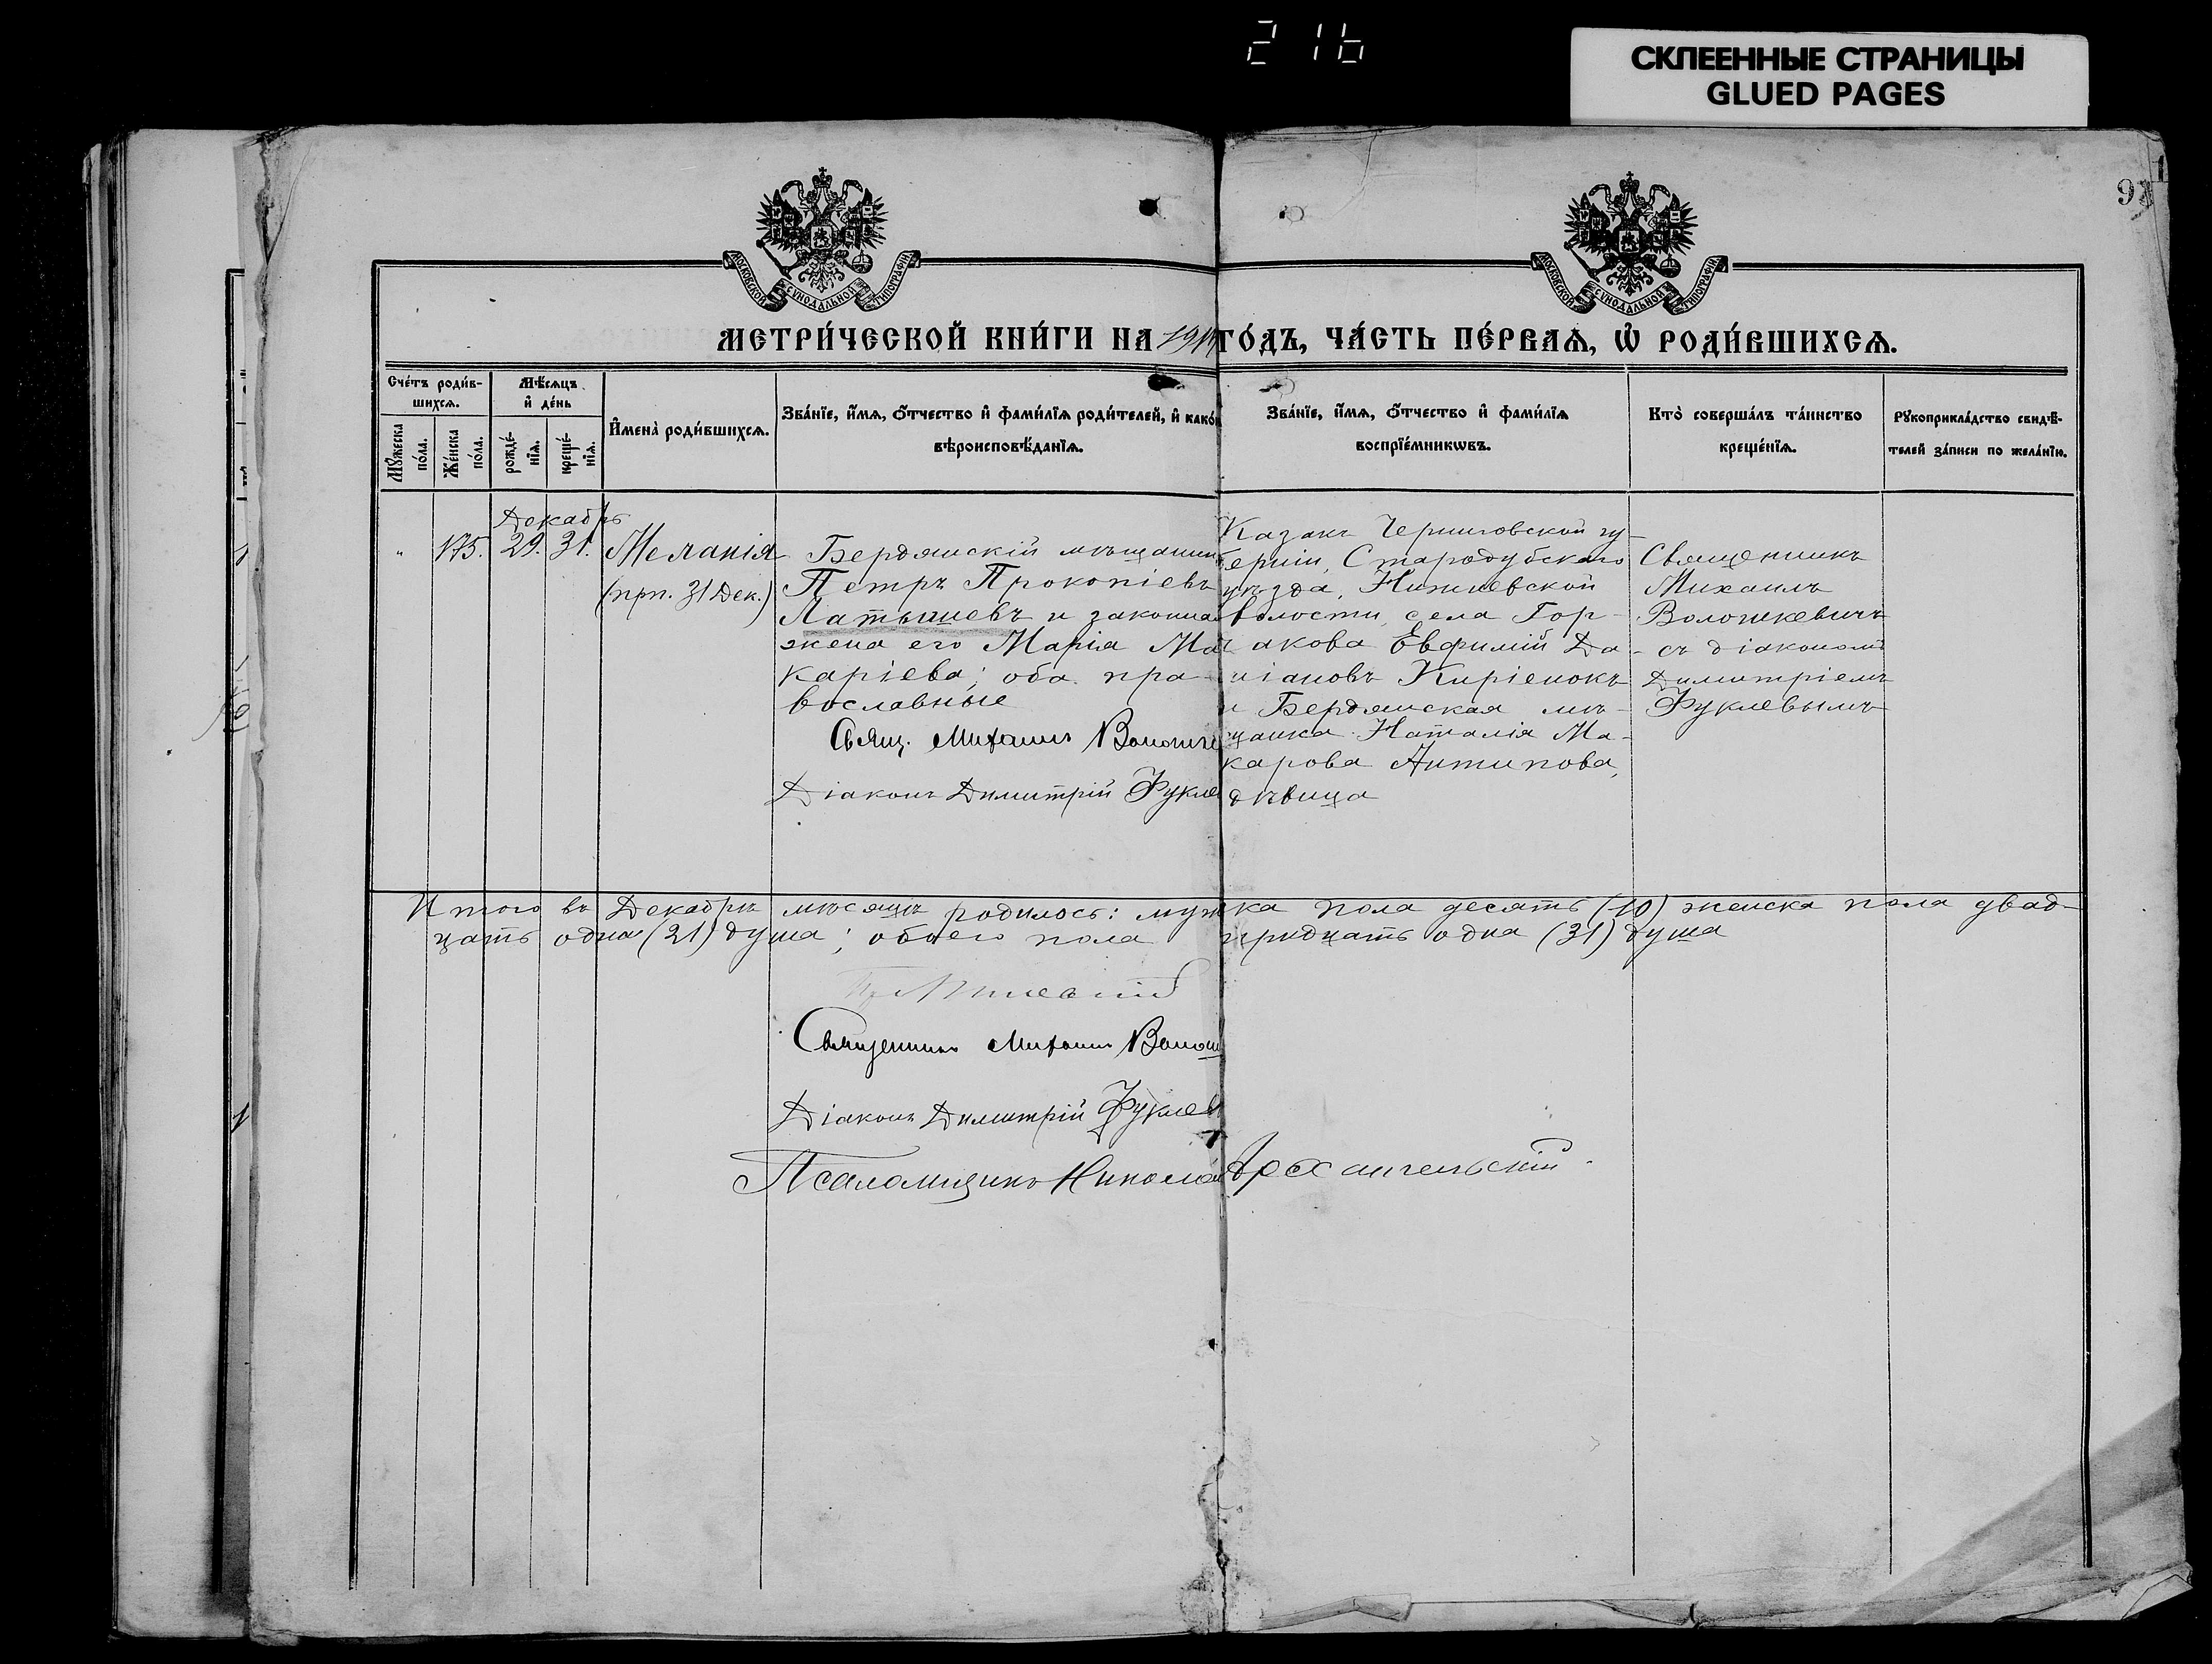 216
СКЛЕЕННЫЕ СТРАНИЦЫ
GLUED PAGES
МОСКОВСКОЙ СУНОДАЛЬНОЙ ТИПОГРАФІИ
МОСКОВСКОЙ СУНОДАЛЬНОЙ ТИПОГРАФІИ
МЕТРИ́ЧЕСКОЙ КНИ́ГИ НА 191 ГО́ДЪ, ЧА́СТЬ ПЕ́РВАѦ, Ѿ РОДИ́ВШИХСѦ.
Сче́тъ роди́в-
шихсѧ.
Мѣ́сѧцъ
и҆ де́нь
Мꙋ́жеска
по́ла.
Же́нска
по́ла.
рожде́-
нїѧ.
креще́-
нїѧ.
И҆мена̀ роди́вшихсѧ.
Зва́нїе, и҆́мѧ, ѻ҆́тчество и҆ фами́лїѧ роди́телей, и҆ како́
вѣроисповѣ́данїѧ.
Зва́нїе, и҆́мѧ, ѻ҆́тчество и҆ фами́лїѧ
воспрїе́мникѡвъ.
Кто̀ соверша́лъ та́инство
креще́нїѧ.
Рꙋкоприкла́дство свидѣ́-
телей за́писи по жела́нїю.
Декабрь
" 175. 29. 31.
Меланія
(прп. 31 Дек.)
Бердянскій мѣщанин
Петръ Прокопіевъ
Латышевъ и законна
жена его Марія Ма
каріева; оба пра-
вославные
Свящ. Михаилъ Волошке
Діаконъ Димитрій Фукле
Казакъ Черниговской гу-
берніи, Стародубскаго
уѣзда, Нижневской
волости, села Гор-
чакова Евфимій Да-
міановъ Киріенокъ
и Бердянская мѣ-
щанка Наталія Ма-
карова Антипова,
дѣвица
Священникъ
Михаилъ
Волошкевичъ
съ діакономъ
Димитріемъ
Фуклевымъ
Итого въ Декабрѣ мѣсяцѣ родилось: мужска пола десять (10) женска пола двад-
цать одна (21) душа; обоего пола тридцать одна (31) душа
Священникъ Михаилъ Волош
Діаконъ Димитрій Фуклев
Псаломщикъ Николай Архангельскій.